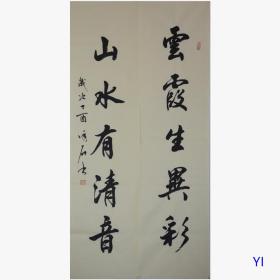 雲霞生異彩
山水有清音
歲次丁酉
YI